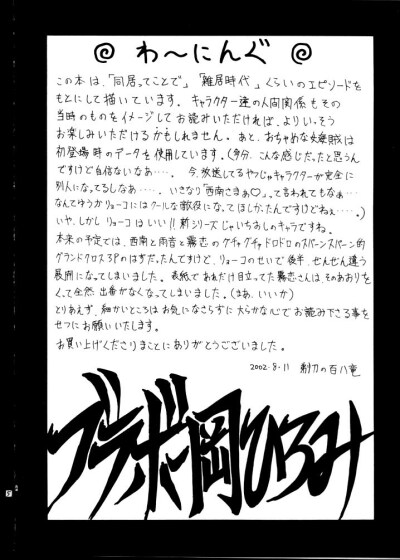 ＠ わ〜にんぐ ＠
この本は、「同居ってことで」「雑居時代」くらいのエピソードを
もとにして描いています。キャラクター達の人間関係もその
当時のものをイメージしてお読みいただければ、よりいっそう
お楽しみいただけるかもしれません。あと、おちゃめな女海賊は
初登場時のデータを使用しています。(多分、こんな感じだったと思うん
ですけど自信ないなあ…。今、放送してるやつじゃキャラクターが完全に
別人になってるしなあ……。いきなり「西南さまぁ♡」って言われてもなぁ…
なんてゆうかリョーコにはクールな敵役になってほしかったんですけどねぇ……。)
いや、しかしリョーコはいい!!新シリーズじゃいちおしのキャラですね。
本来の予定では、西南と雨音と霧恋のグチャグチャドロドロのスパーンスパーン的
グランドクロス3Pのはずだったんですけど、リョーコのせいで後半、ぜんぜん違う
展開になってしまいました。表紙であれだけ目立ってた霧恋さんは、そのあおりを
くって全然出番がなくなってしまいました。(まあ、いいか)
とりあえず、細かいところはお気になさらずに大らかな心でお読み下さる事を
せつにお願いいたします。
お買い上げくださりまことにありがとうございました。
2002.8.11 剃刀の百八竜
ブラボー岡ひろみ